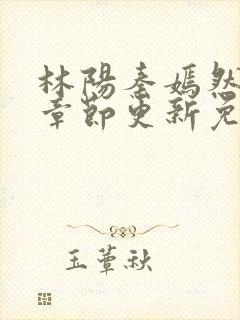 林陽秦嫣然
章節更新免
玉蕈秋